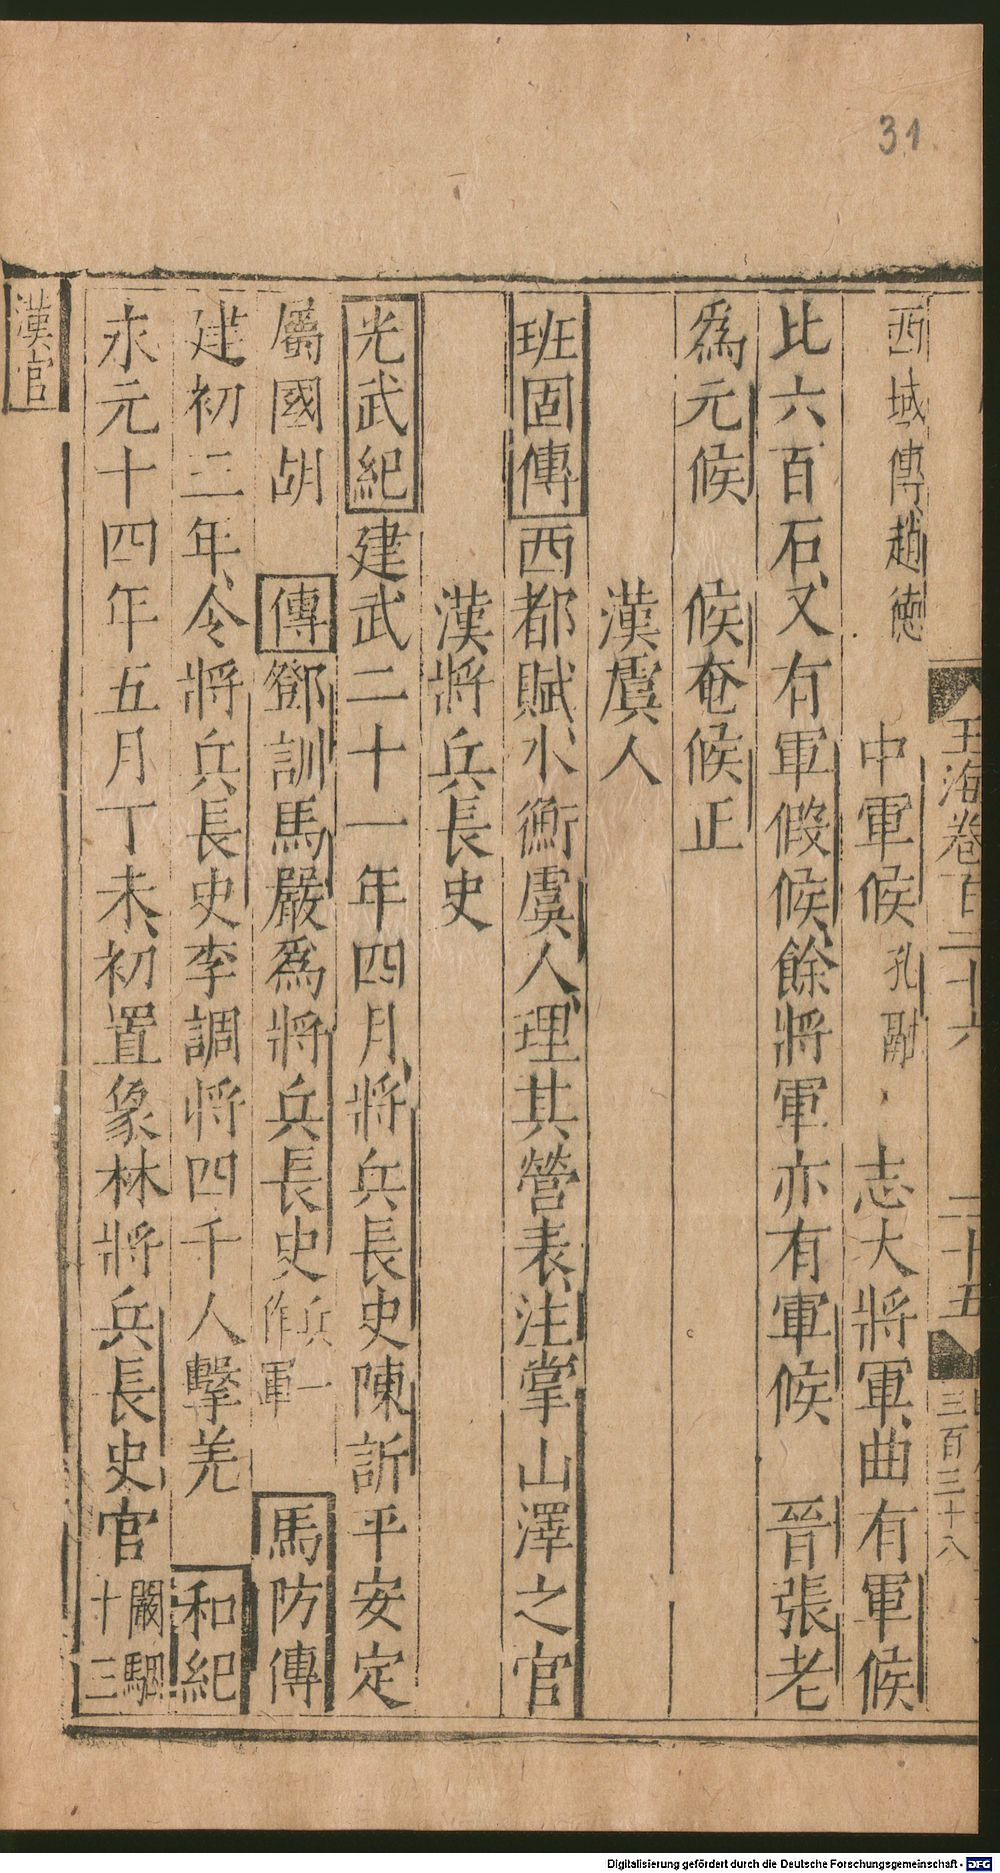 31
玉海卷百二十六
二十五
三百三十八
西域傳趙徳 中軍候 孔謝 志大將軍曲有軍候
比六百石又有軍假候餘將軍亦有軍候 晉張老
爲元候 候奄候正
漢虞人
班固傳西都賦水衡虞人理其營表注掌山澤之官
漢將兵長史
光武紀建武二十一年四月將兵長史陳訢平安定
屬國胡 傳鄧訓馬嚴爲將兵長史 兵一作軍 馬防傳
建初二年令將兵長史李調將四千人擊羌 和紀
永元十四年五月丁未初置象林將兵長史官 闞駰十三
漢官
Digitalisierung gefördert durch die Deutsche Forschungsgemeinschaft - DFG